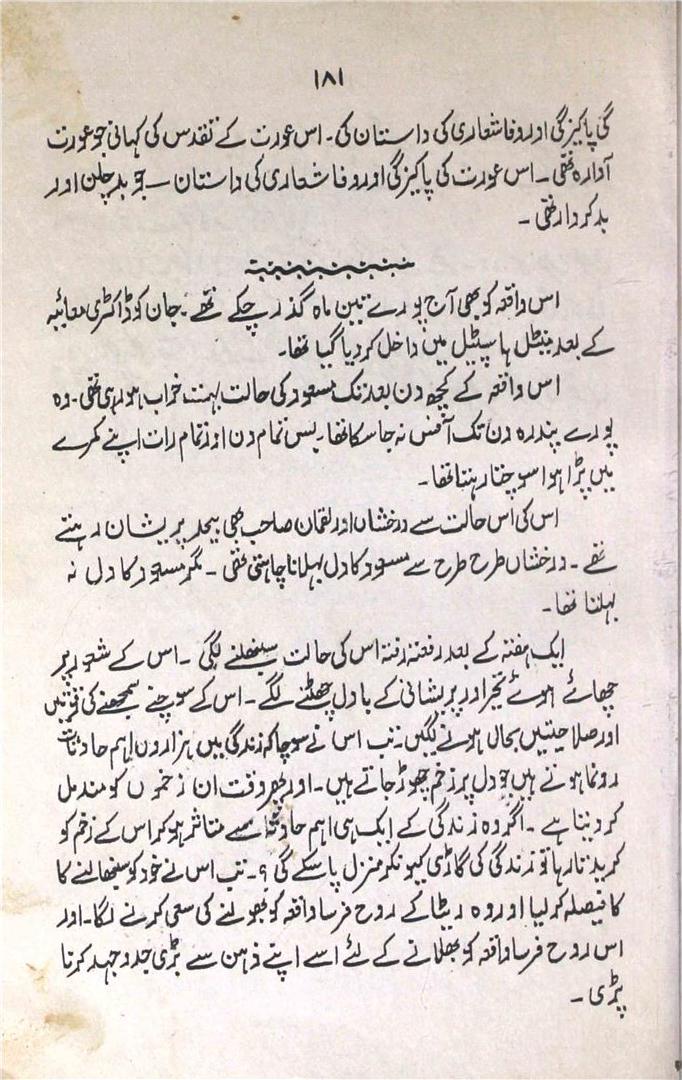 ۱۸۱
گی پاکیزگی اور وفا شعاری کی داستان کی۔ اس عورت کے تقدس کی کہانی جو عورت
آوارہ تھی۔ اس عورت کی پاکیزگی اور وفا شعاری کی داستان — جو بدچلن اور
بدکردار تھی۔
اس واقعہ کو بھی آج پورے تین ماہ گذر چکے تھے۔ جان کو ڈاکٹری معائینہ
کے بعد مینٹل ہاسپٹیل میں داخل کر دیا گیا تھا۔
اس واقعہ کے کچھ دن بعد تک مسعود کی حالت بہت خراب ہو رہی تھی۔ وہ
پورے پندرہ دن تک آفس نہ جا سکا تھا۔ بس تمام دن اور تمام رات اپنے کمرے
میں پڑا ہوا سوچتا رہتا تھا۔
اس کی اس حالت سے درخشاں اور لقمان صاحب بھی بیحد پریشان رہتے
تھے۔ درخشاں طرح طرح سے مسعود کا دل بہلانا چاہتی تھی۔ مگر مسعود کا دل نہ
بہلتا تھا۔
ایک ہفتہ کے بعد رفتہ رفتہ اس کی حالت سنبھلنے لگی۔ اس کے شعور پر
چھائے ہوئے تحیر اور پریشانی کے بادل چھٹنے لگے۔ اس کے سوچنے سمجھنے کی قوتیں
اور صلاحیتیں بحال ہونے لگیں۔ تب اس نے سوچا کہ زندگی میں ہزاروں اہم حادثات
رونما ہوتے ہیں جو دل پر زخم چھوڑ جاتے ہیں۔ اور پھر وقت ان زخموں کو مندمل
کر دیتا ہے۔ اگر وہ زندگی کے ایک ہی اہم حادثہ سے متاثر ہو کر اس کے زخم کو
کریدتا رہا تو زندگی کی گاڑی کیونکر منزل پا سکے گی؟۔ تب اس نے خود کو سنبھالنے کا
کا فیصلہ کر لیا اور وہ ریٹا کے روح فرسا واقعہ کو بھولنے کی سعی کرنے لگا۔ اور
اس روح فرسا واقعہ کو بھلانے کے لئے اسے اپنے ذہن سے بڑی جدوجہد کرنا
پڑی۔